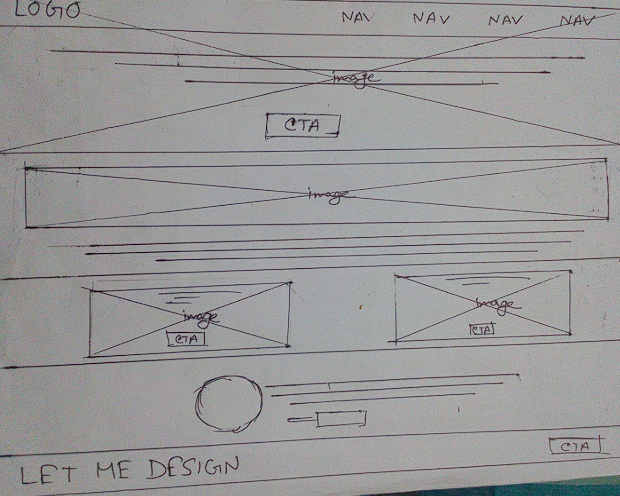 LOGO NAV NAV NAV NAV
image
CTA
image
image image
CTA CTA
LET ME DESIGN CTA